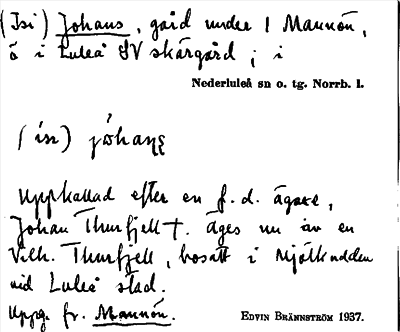 (Isi) Johans, gård under 1 Mannön,
ö i Luleå SV skärgård; i
Nederluleå sn o. tg. Norrb. l.
(ísı) jóhans
Uppkallad efter en f.d. ägare,
Johan Thurfjell †. Äges nu av en
Vilh. Thurfjell, bosatt i Mjölkudden
vid Luleå stad.
Uppg. fr. Mannön.
EDVIN BRÄNNSTRÖM 1937.